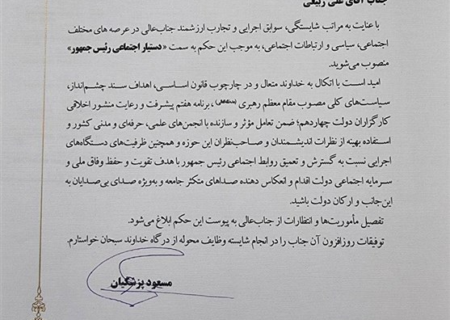 جناب آقای علی ربیعی
با عنایت به مراتب شایستگی، سوابق اجرایی و تجارب ارزشمند جناب‌عالی در عرصه های مختلف
اجتماعی، سیاسی و ارتباطات اجتماعی، به موجب این حکم به سمت «دستیار اجتماعی رئیس جمهور»
منصوب می‌شوید.
امید است با اتکال به خداوند متعال و در چارچوب قانون اساسی، اهداف سند چشم‌انداز،
سیاست‌های کلی مصوب مقام معظم رهبری، برنامه هفتم پیشرفت و رعایت منشور اخلاقی
کارگزاران دولت چهاردهم؛ ضمن تعامل مؤثر و سازنده با انجمن‌های علمی، حرفه‌ای و مدنی کشور و
استفاده بهینه از نظرات اندیشمندان و صاحب‌نظران این حوزه و همچنین ظرفیت‌های دستگاه‌های
اجرایی نسبت به گسترش و تعمیق روابط اجتماعی رئیس جمهور با هدف تقویت و حفظ وفاق ملی و
سرمایه اجتماعی دولت اقدام و انعکاس دهنده صداهای متکثر جامعه و به‌ویژه صدای بی‌صدایان به
این‌جانب و ارکان دولت باشید.
تفصیل مأموریت‌ها و انتظارات از جناب‌عالی به پیوست این حکم ابلاغ می‌شود.
توفیقات روزافزون آن جناب را در انجام شایسته وظایف محوله از درگاه خداوند سبحان خواستارم.
مسعود پزشکیان